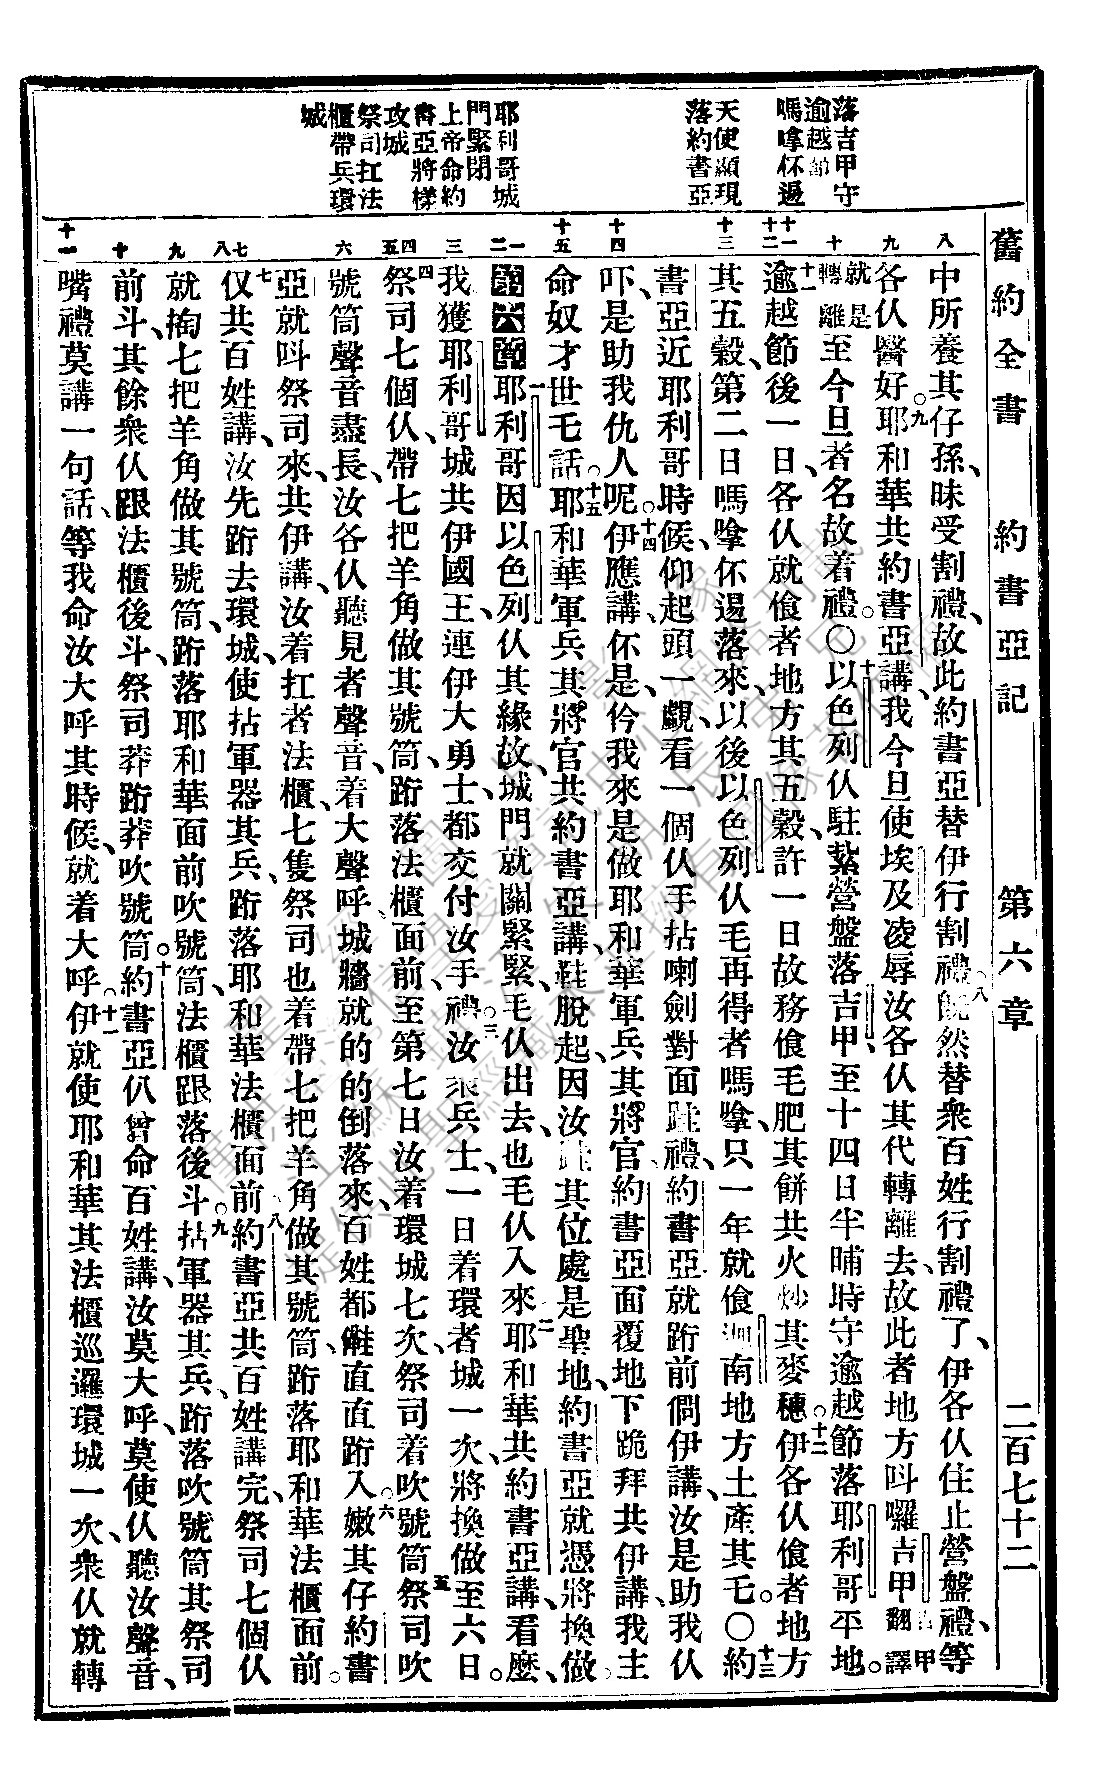 舊約全書 約書亞記 第六章 二百七十二
落吉甲守
逾越節
嗎嗱伓遏
天使顯現
落約書亞
耶利哥城
門緊閉
上帝命約
書亞將樣
攻城
祭司扛法
櫃帶兵環
城
八
九
十
十一
十二
十三
十四
十五
一
二
三
四
五
六
七
八
九
十
十一
中所養其仔孫、昧受割禮、故此約書亞替伊行割禮。八旣然替衆百姓行割禮了、伊各仈住止營盤禮、等
各仈醫好。九耶和華共約書亞講、我今旦使埃及凌辱汝各仈其代轉離去、故此者地方呌囉吉甲吉甲翻譯
就是轉離至今旦者名故着禮。〇十以色列仈駐紮營盤落吉甲、至十四日半晡時守逾越節落耶利哥平地。
十一逾越節後一日、各仈就飡者地方其五穀、許一日故務飡毛肥其餅共火炒其麥穗。十二伊各仈飡者地方
其五穀、第二日嗎嗱伓遏落來、以後以色列仈毛再得者嗎嗱、只一年就飡迦南地方土產其乇。〇十三約
書亞近耶利哥時候、仰起頭一覷、看一個仈手拈喇劍對面跬禮、約書亞就跔前問伊講、汝是助我仈
吓、是助我仇人呢。十四伊應講、伓是、仱我來是做耶和華軍兵其將官、約書亞面覆地下跪拜共伊講、我主
命奴才世乇話。十五耶和華軍兵其將官共約書亞講、鞋脫起、因汝跬其位處是聖地、約書亞就憑將換做。
第六章一耶利哥因以色列仈其緣故、城門就關緊緊、毛仈出去、也毛仈入來。二耶和華共約書亞講、看麼、
我獲耶利哥城共伊國王、連伊大勇士、都交付汝手禮。三汝衆兵士、一日着環者城一次、將換做至六日。
四祭司七個仈、帶七把羊角做其號筒、跔落法櫃面前、至第七日汝着環城七次、祭司着吹號筒。五祭司吹
號筒聲音盡長、汝各仈聽見者聲音、着大聲呼、城牆就的的倒落來、百姓都䧳直直跔入。六嫩其仔約書
亞就呌祭司來、共伊講、汝着扛者法櫃、七隻祭司也着帶七把羊角做其號筒、跔落耶和華法櫃面前
七仅共百姓講、汝先跔去環城、使拈軍器其兵、跔落耶和華法櫃面前。八約書亞共百姓講完、祭司七個仈
就掏七把羊角做其號筒、跔落耶和華面前吹號筒、法櫃跟落後斗。九拈軍器其兵、跔落吹號筒其祭司
前斗、其餘衆仈跟法櫃後斗、祭司莽跔莽吹號筒。十約書亞仈曾命百姓講、汝莫大呼、莫使仈聽汝聲音、
嘴禮莫講一句話、等我命汝大呼其時候、就着大呼。十一伊就使耶和華其法櫃巡邏環城一次、衆仈就轉